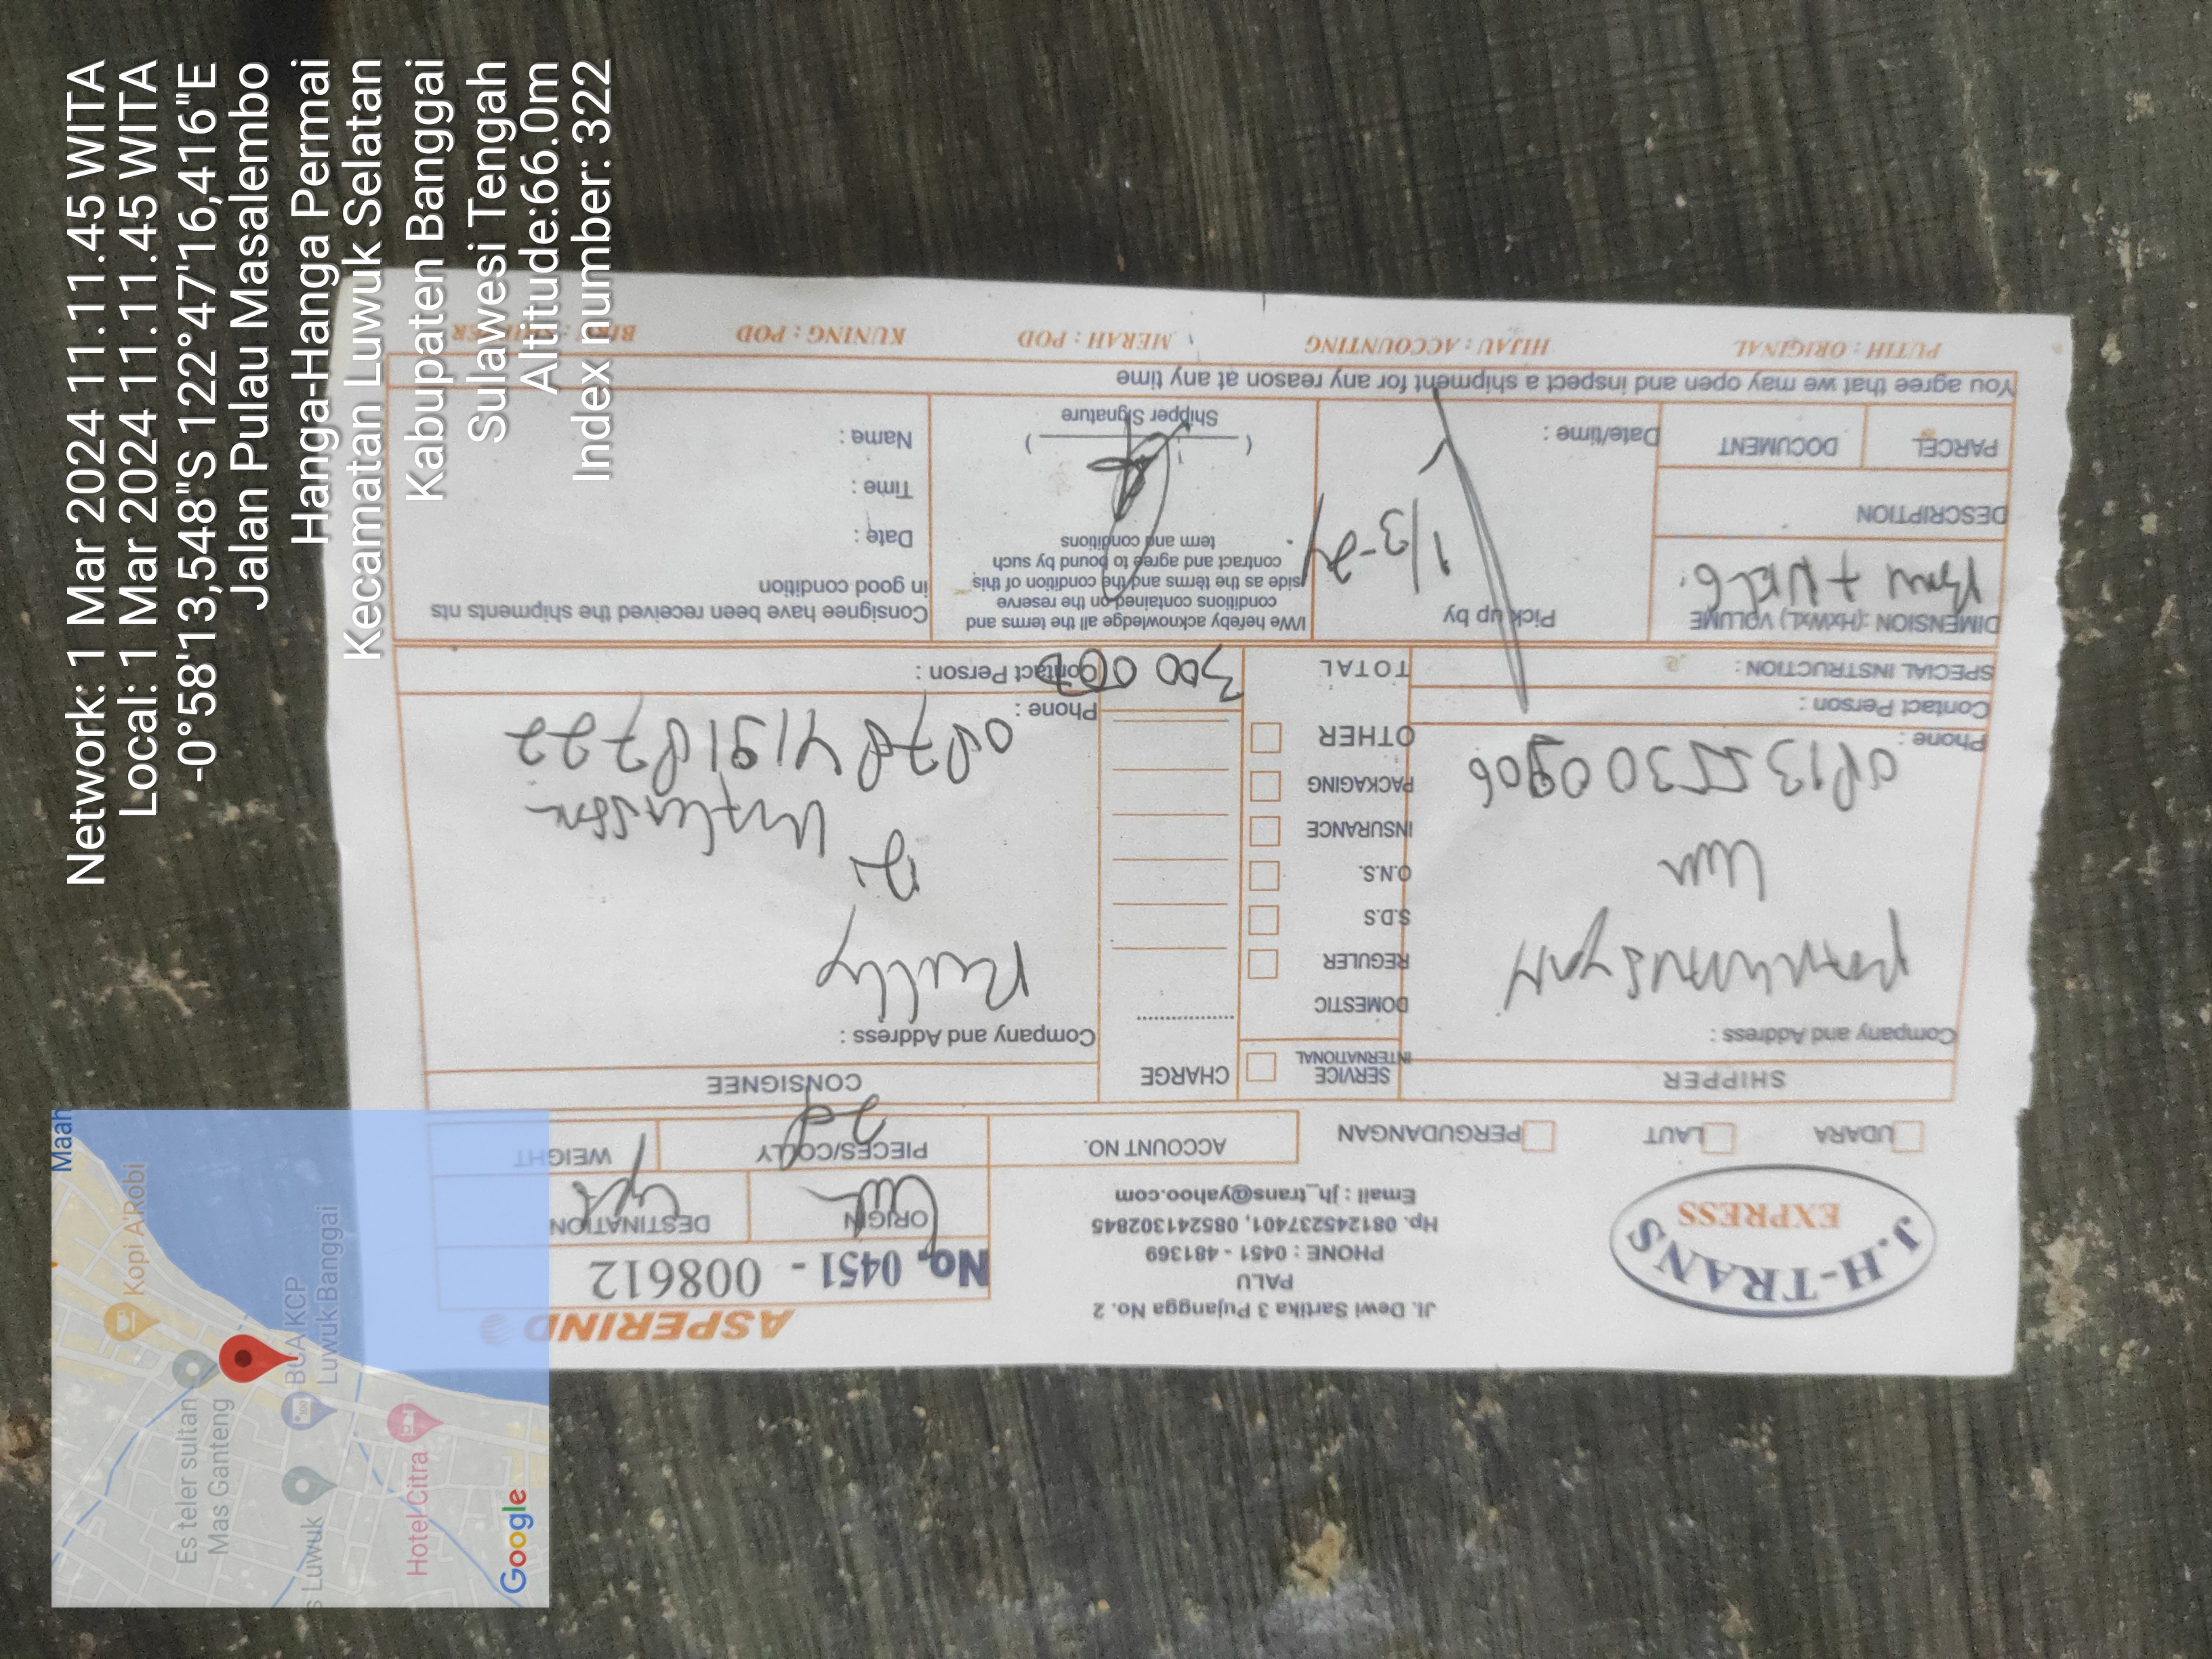 Network: 1 Mar 2024 11.11.45 WITA
Local: 1 Mar 2024 11.11.45 WITA
-0°58'13,548"S 122°47'16,416"E
Jalan Pulau Masalembo
Hanga-Hanga Permai
Kecamatan Luwuk Selatan
Kabupaten Banggai
Sulawesi Tengah
Altitude:66.0m
Index number: 322
Maah
Kopi A'Robi
Es teler sultan
Mas Ganteng
BCA KCP
Luwuk Banggai
s Luwuk
Hotel Citra
Google
J.H-TRANS
EXPRESS
Jl. Dewi Sartika 3 Pujangga No. 2
PALU
PHONE : 0451 - 481369
Hp. 081245237401, 085241302845
Email : jh_trans@yahoo.com
ASPERIND
No. 0451 - 008612
ORIGIN
DESTINATION
UDARA
LAUT
PERGUDANGAN
ACCOUNT NO.
PIECES/COLLY
WEIGHT
SHIPPER
SERVICE
INTERNATIONAL
CHARGE
CONSIGNEE
Company and Address :
DOMESTIC
REGULER
S.D.S
O.N.S.
INSURANCE
PACKAGING
OTHER
TOTAL
300 000
Phone :
Contact Person :
SPECIAL INSTRUCTION :
Company and Address :
Rully
087841918722
Phone :
Contact Person :
DIMENSION :(HxWxL) VOLUME
DESCRIPTION
PARCEL
DOCUMENT
Pick up by
1/3-24
Date/time :
I/We hefeby acknowledge all the terms and
conditions contained on the reserve
side as the terms and the condition of this
contract and agree to bound by such
term and conditions
Shipper Signature
Consignee have been received the shipments nts
in good condition
Date :
Time :
Name :
You agree that we may open and inspect a shipment for any reason at any time
PUTIH : ORIGINAL
HIJAU : ACCOUNTING
MERAH : POD
KUNING : POD
BIRU : SHIPPER